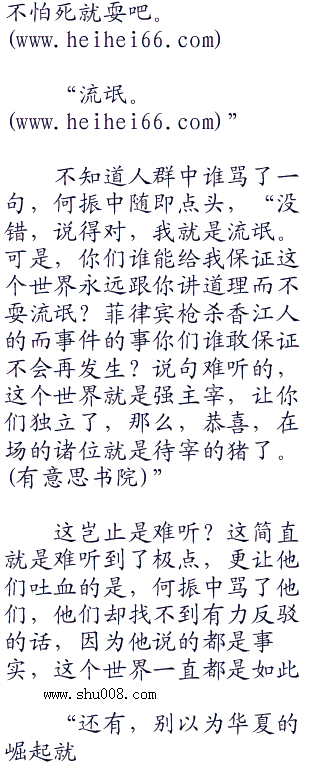 不怕死就耍吧。
(www.heihei66.com)
“流氓。
(www.heihei66.com)”
不知道人群中谁骂了一
句，何振中随即点头，“没
错，说得对，我就是流氓。
可是，你们谁能给我保证这
个世界永远跟你讲道理而不
耍流氓？菲律宾枪杀香江人
的而事件的事你们谁敢保证
不会再发生？说句难听的，
这个世界就是强主宰，让你
们独立了，那么，恭喜，在
场的诸位就是待宰的猪了。
(有意思书院)”
这岂止是难听？这简直
就是难听到了极点，更让他
们吐血的是，何振中骂了他
们，他们却找不到有力反驳
的话，因为他说的都是事
实，这个世界一直都是如此
www.shu008.com
“还有，别以为华夏的
崛起就